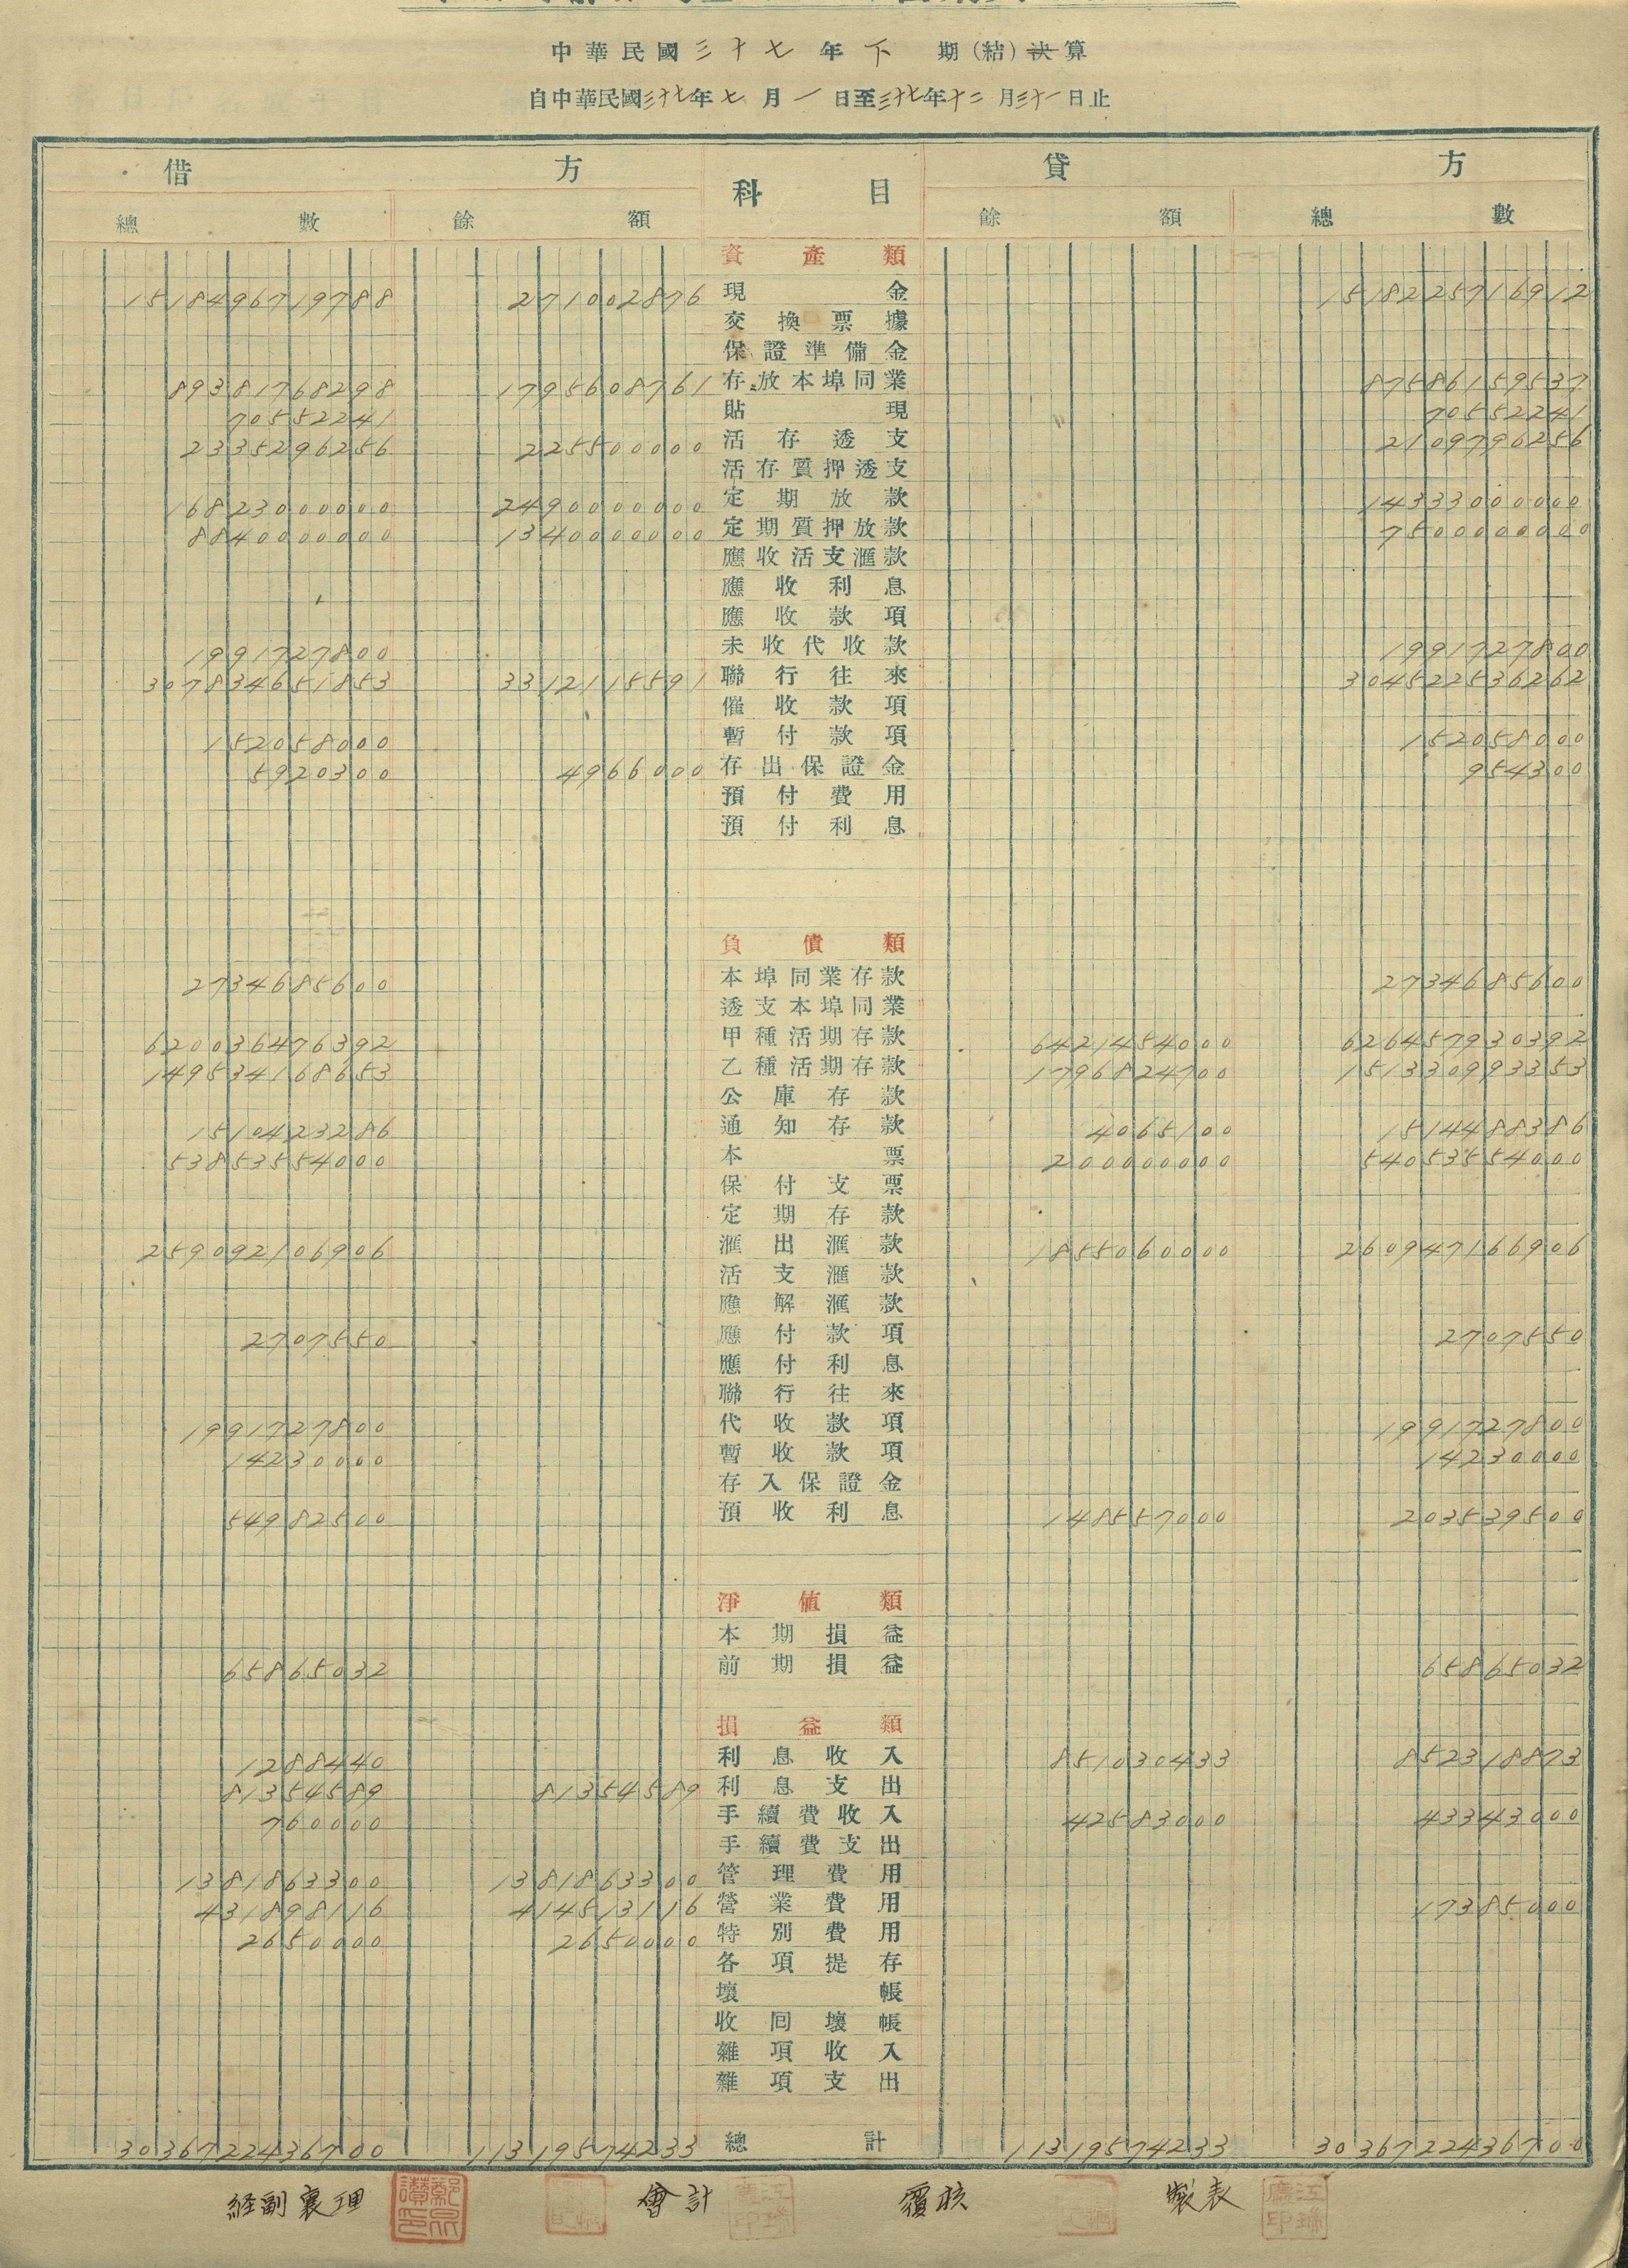 中華民國三十七年下期(結)決算
自中華民國三十七年七月一日至三十七年十二月三十一日止
借方 科目 貸方
總數 餘額 餘額 總數
資產類
1518496719788 271002876 現金 1518225716912
交換票據
保證準備金
89381768298 1795608761 存放本埠同業 87586159537
70552241 貼現 70552241
2335296256 225500000 活存透支 2109796256
活存質押透支
16823000000 2490000000 定期放款 14333000000
8840000000 1340000000 定期質押放款 7500000000
應收活支滙款
應收利息
應收款項
1991727800 未收代收款 1991727800
307834651853 3312115591 聯行往來 304522536262
催收款項
152058000 暫付款項 152058000
5920300 4966000 存出保證金 954300
預付費用
預付利息
負債類
2734685600 本埠同業存款 2734685600
透支本埠同業
620036476392 甲種活期存款 6421454000 626457930392
149534168653 乙種活期存款 1796824700 151330993353
公庫存款
1510423286 通知存款 4065100 1514488386
53853554000 本票 200000000 54053554000
保付支票
定期存款
259092106906 滙出滙款 1855060000 260947166906
活支滙款
應解滙款
2707550 應付款項 2707550
應付利息
聯行往來
1991727800 代收款項 1991727800
14230000 暫收款項 14230000
存入保證金
54982500 預收利息 148557000 203539500
淨值類
本期損益
65865032 前期損益 65865032
損益類
1288440 利息收入 851030433 852318873
81354589 81354589 利息支出
760000 手續費收入 42583000 43343000
手續費支出
1381863300 1381863300 管理費用
431898116 414513116 營業費用 17385000
2650000 2650000 特別費用
各項提存
壞帳
收回壞帳
雜項收入
雜項支出
3036722436700 11319574233 總計 11319574233 3036722436700
経副襄理 會計 覆核 製表